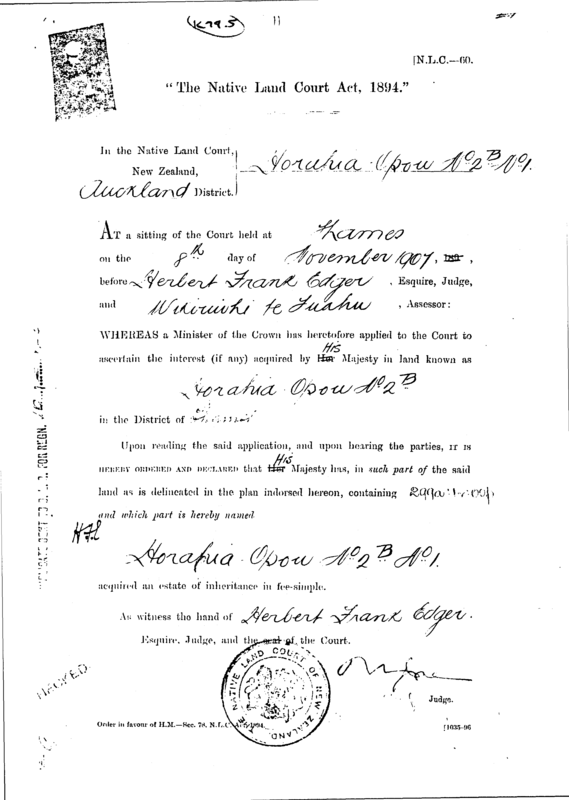 K79.5
[N.L.C.—60.
"The Native Land Court Act, 1894."
In the Native Land Court,
New Zealand,
Auckland District.
Horahia Opou No 2B No 1.
AT a sitting of the Court held at Thames
on the 8th day of November 1907, 189 ,
before Herbert Frank Edger , Esquire, Judge,
and te Tuahu , Assessor:
WHEREAS a Minister of the Crown has heretofore applied to the Court to
ascertain the interest (if any) acquired by Her His Majesty in land known as
Horahia Opou No 2B
in the District of Thames
Upon reading the said application, and upon hearing the parties, IT IS
HEREBY ORDERED AND DECLARED that Her His Majesty has, in such part of the said
land as is delineated in the plan indorsed hereon, containing
and which part is hereby named
Horahia Opou No 2B No 1.
acquired an estate of inheritance in fee-simple.
As witness the hand of Herbert Frank Edger.
Esquire, Judge, and the seal of the Court.
THE NATIVE LAND COURT OF NEW ZEALAND.
Judge.
Order in favour of H.M.—Sec. 78, N.L.C. Act, 1894.
[1035-96
FOR REGN.